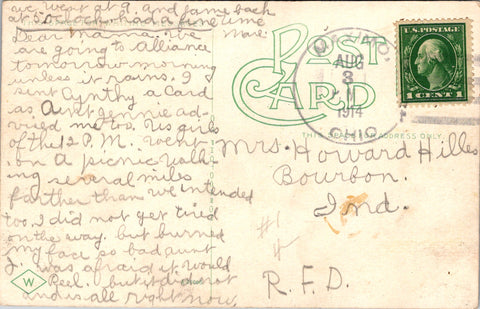 we went at 9. and came back
at 5 oclock. had a fine time
Mare.
Dear Mama:- We
are going to Alliance
tomorrow morning
unless it rains. I
sent Cynthy a Card
as Aunt Jennie ad-
vised me to. Us girls
of the P.M. went
on a picnic walk
ing several miles
farther than we intended
too. I did not get tired
on the way. but burned
my face so bad aunt
J. was afraid it would
Peel. but it did not
and is all right now.
POST
CARD
THIS SPACE FOR ADDRESS ONLY
AUG
3
M
1914
OHIO
U.S. POSTAGE
1 CENT 1
Mrs. Howard Hilles
Bourbon.
Ind.
#1
R.F.D.
W